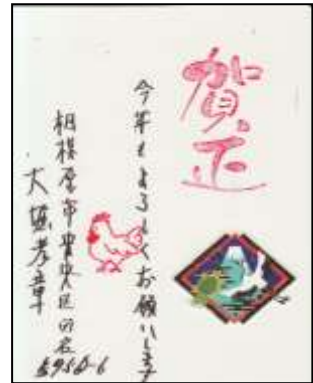 賀正
今年もよろしくお願いします
相模原市中央区田名
大塚孝章